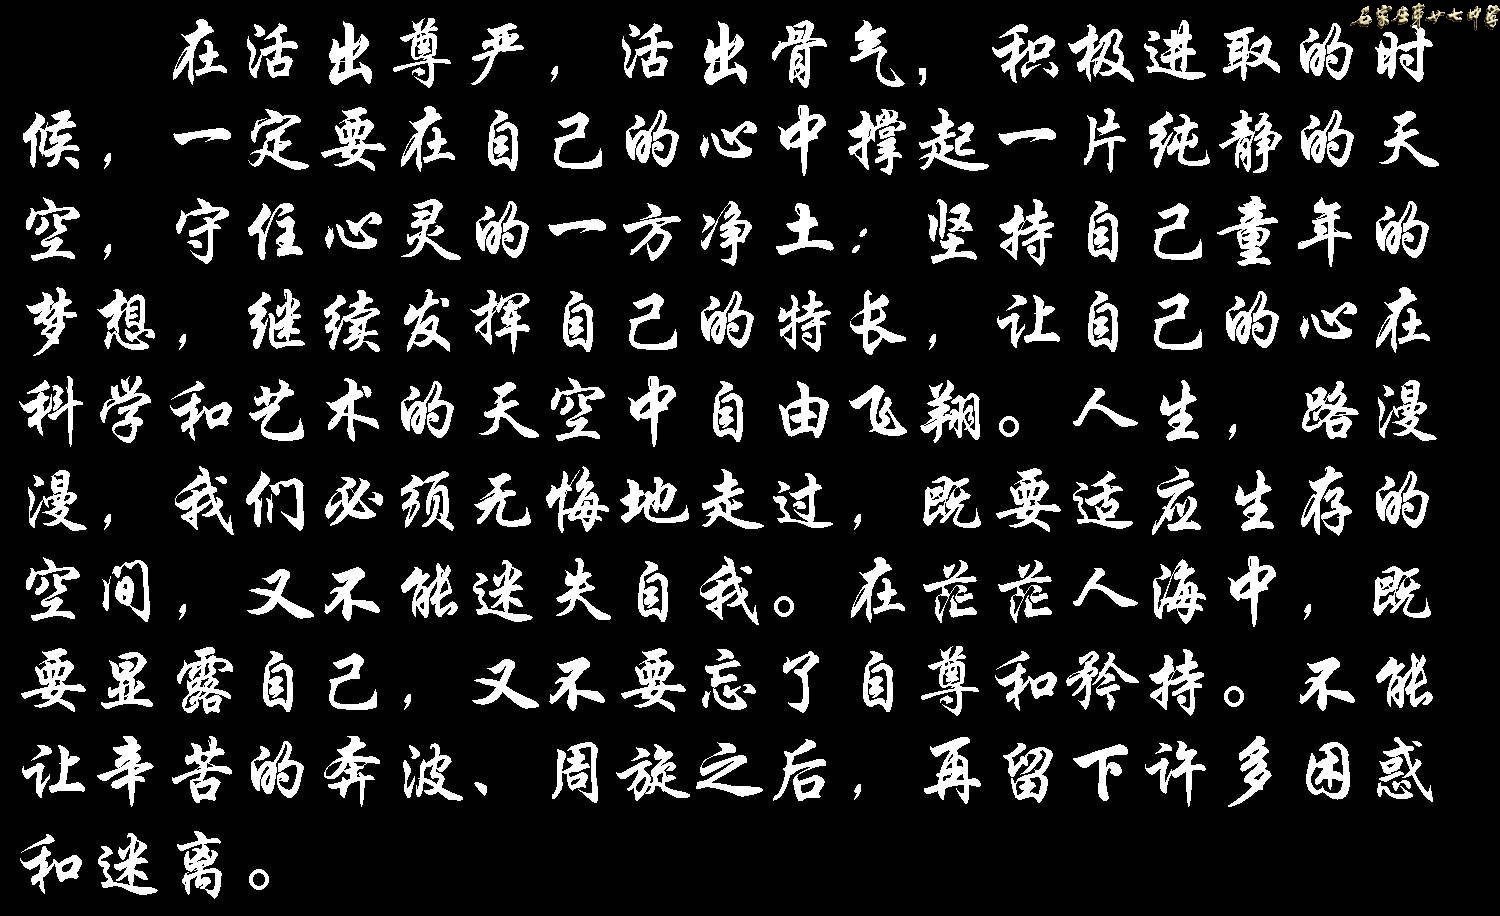 在活出尊严，活出骨气，积极进取的时
候，一定要在自己的心中撑起一片纯静的天
空，守住心灵的一方净土；坚持自己童年的
梦想，继续发挥自己的特长，让自己的心在
科学和艺术的天空中自由飞翔。人生，路漫
漫，我们必须无悔地走过，既要适应生存的
空间，又不能迷失自我。在茫茫人海中，既
要显露自己，又不要忘了自尊和矜持。不能
让辛苦的奔波、周旋之后，再留下许多困惑
和迷离。